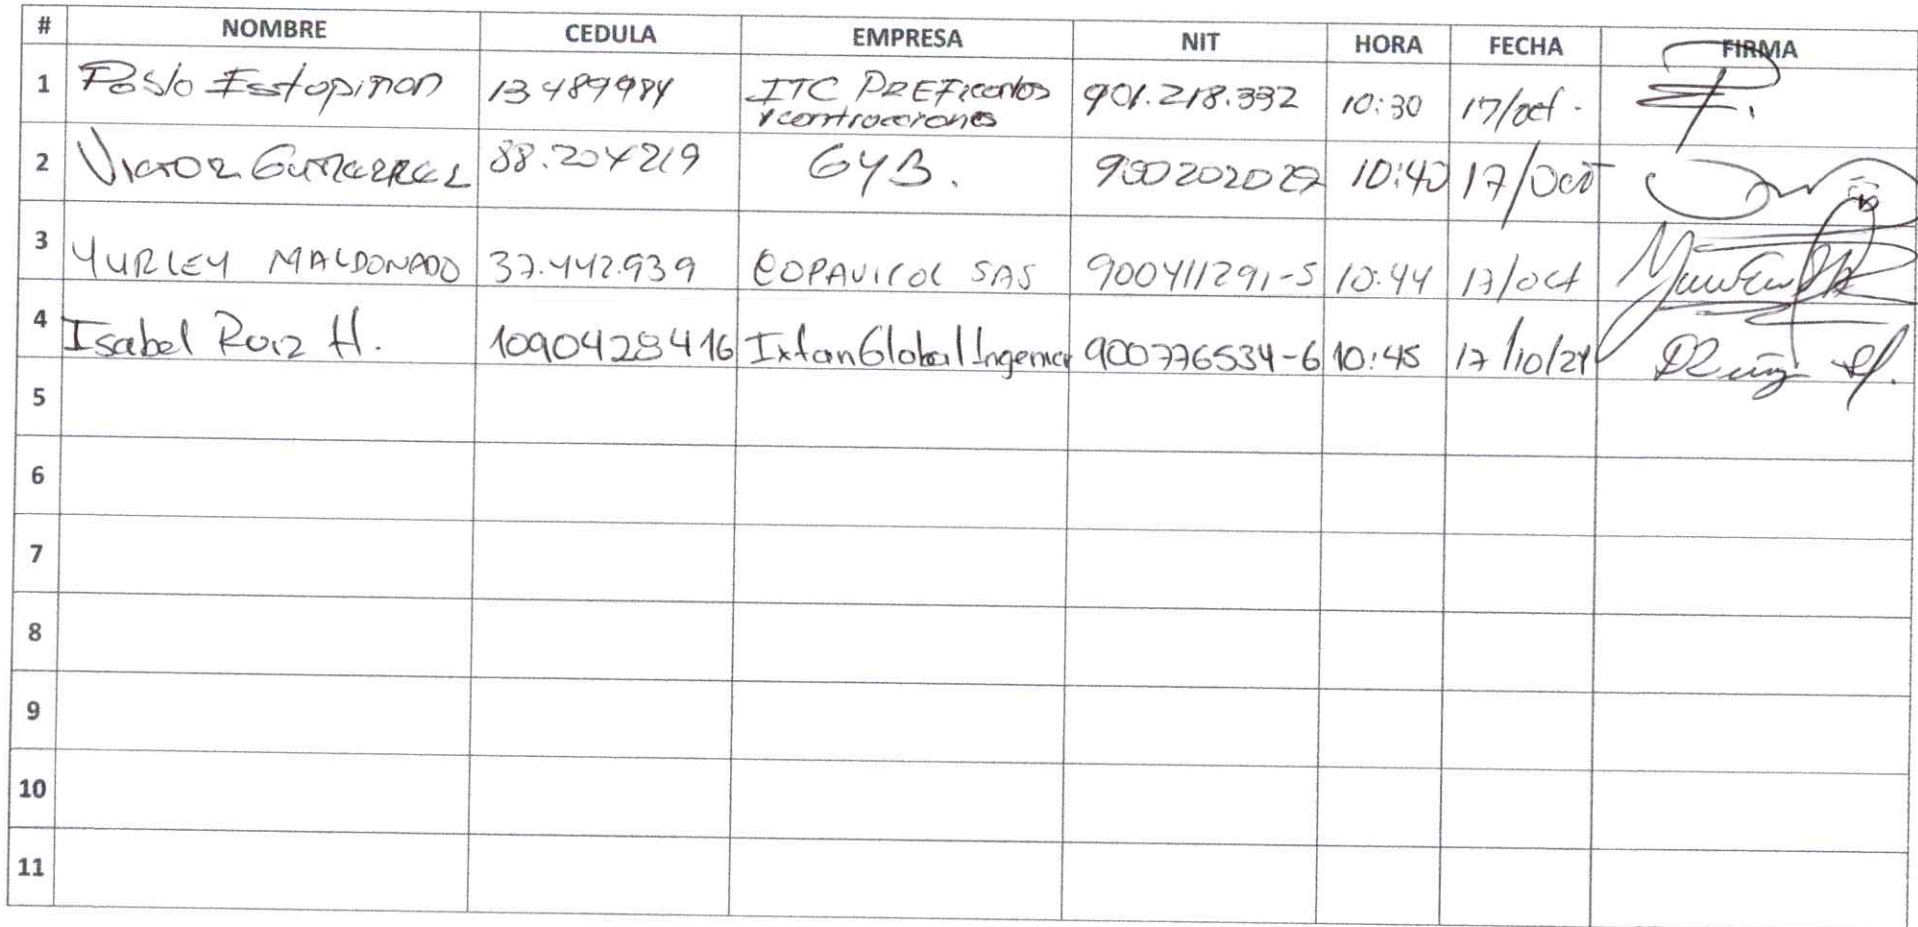 # NOMBRE CEDULA EMPRESA NIT HORA FECHA FIRMA
1 Poslo Estopiñon 13489984 ITC PREFicontos 901.218.332 10:30 17/oct.
y controcciones
2 VICTOR GUTIERREZ 88.204219 GYB. 900202027 10:40 17/Oct
3 YURLEY MALDONADO 37.442.939 COPAVICOL SAS 900411291-5 10:44 17/oct
4 Isabel Ruiz H. 1090428416 Ixtan Global Ingenier 900776534-6 10:45 17/10/24
5
6
7
8
9
10
11